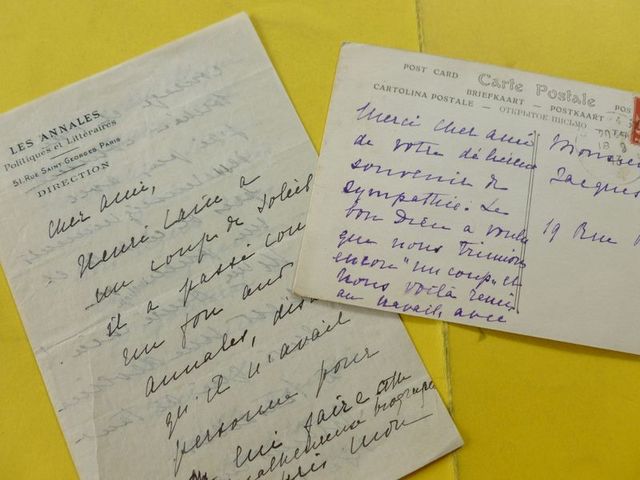 LES ANNALES
Politiques et Littéraires
51, RUE SAINT GEORGES PARIS
DIRECTION
Cher ami,
Henri Cain a
un coup de soleil
il a passé
un fou aux
annales,
qu'il n'avait
personne pour
lui faire cette
malheureuse
POST CARD Carte Postale
BRIEFKAART — POSTKAART
CARTOLINA POSTALE — ОТКРЫТОЕ ПИСЬМО
Merci cher ami
de votre délicieux
souvenir de
sympathie. Le
bon Dieu a voulu
que nous trinquions
encore "un coup" et
nous voilà remis
au travail, avec
Monsieur
Jacques
19 Rue